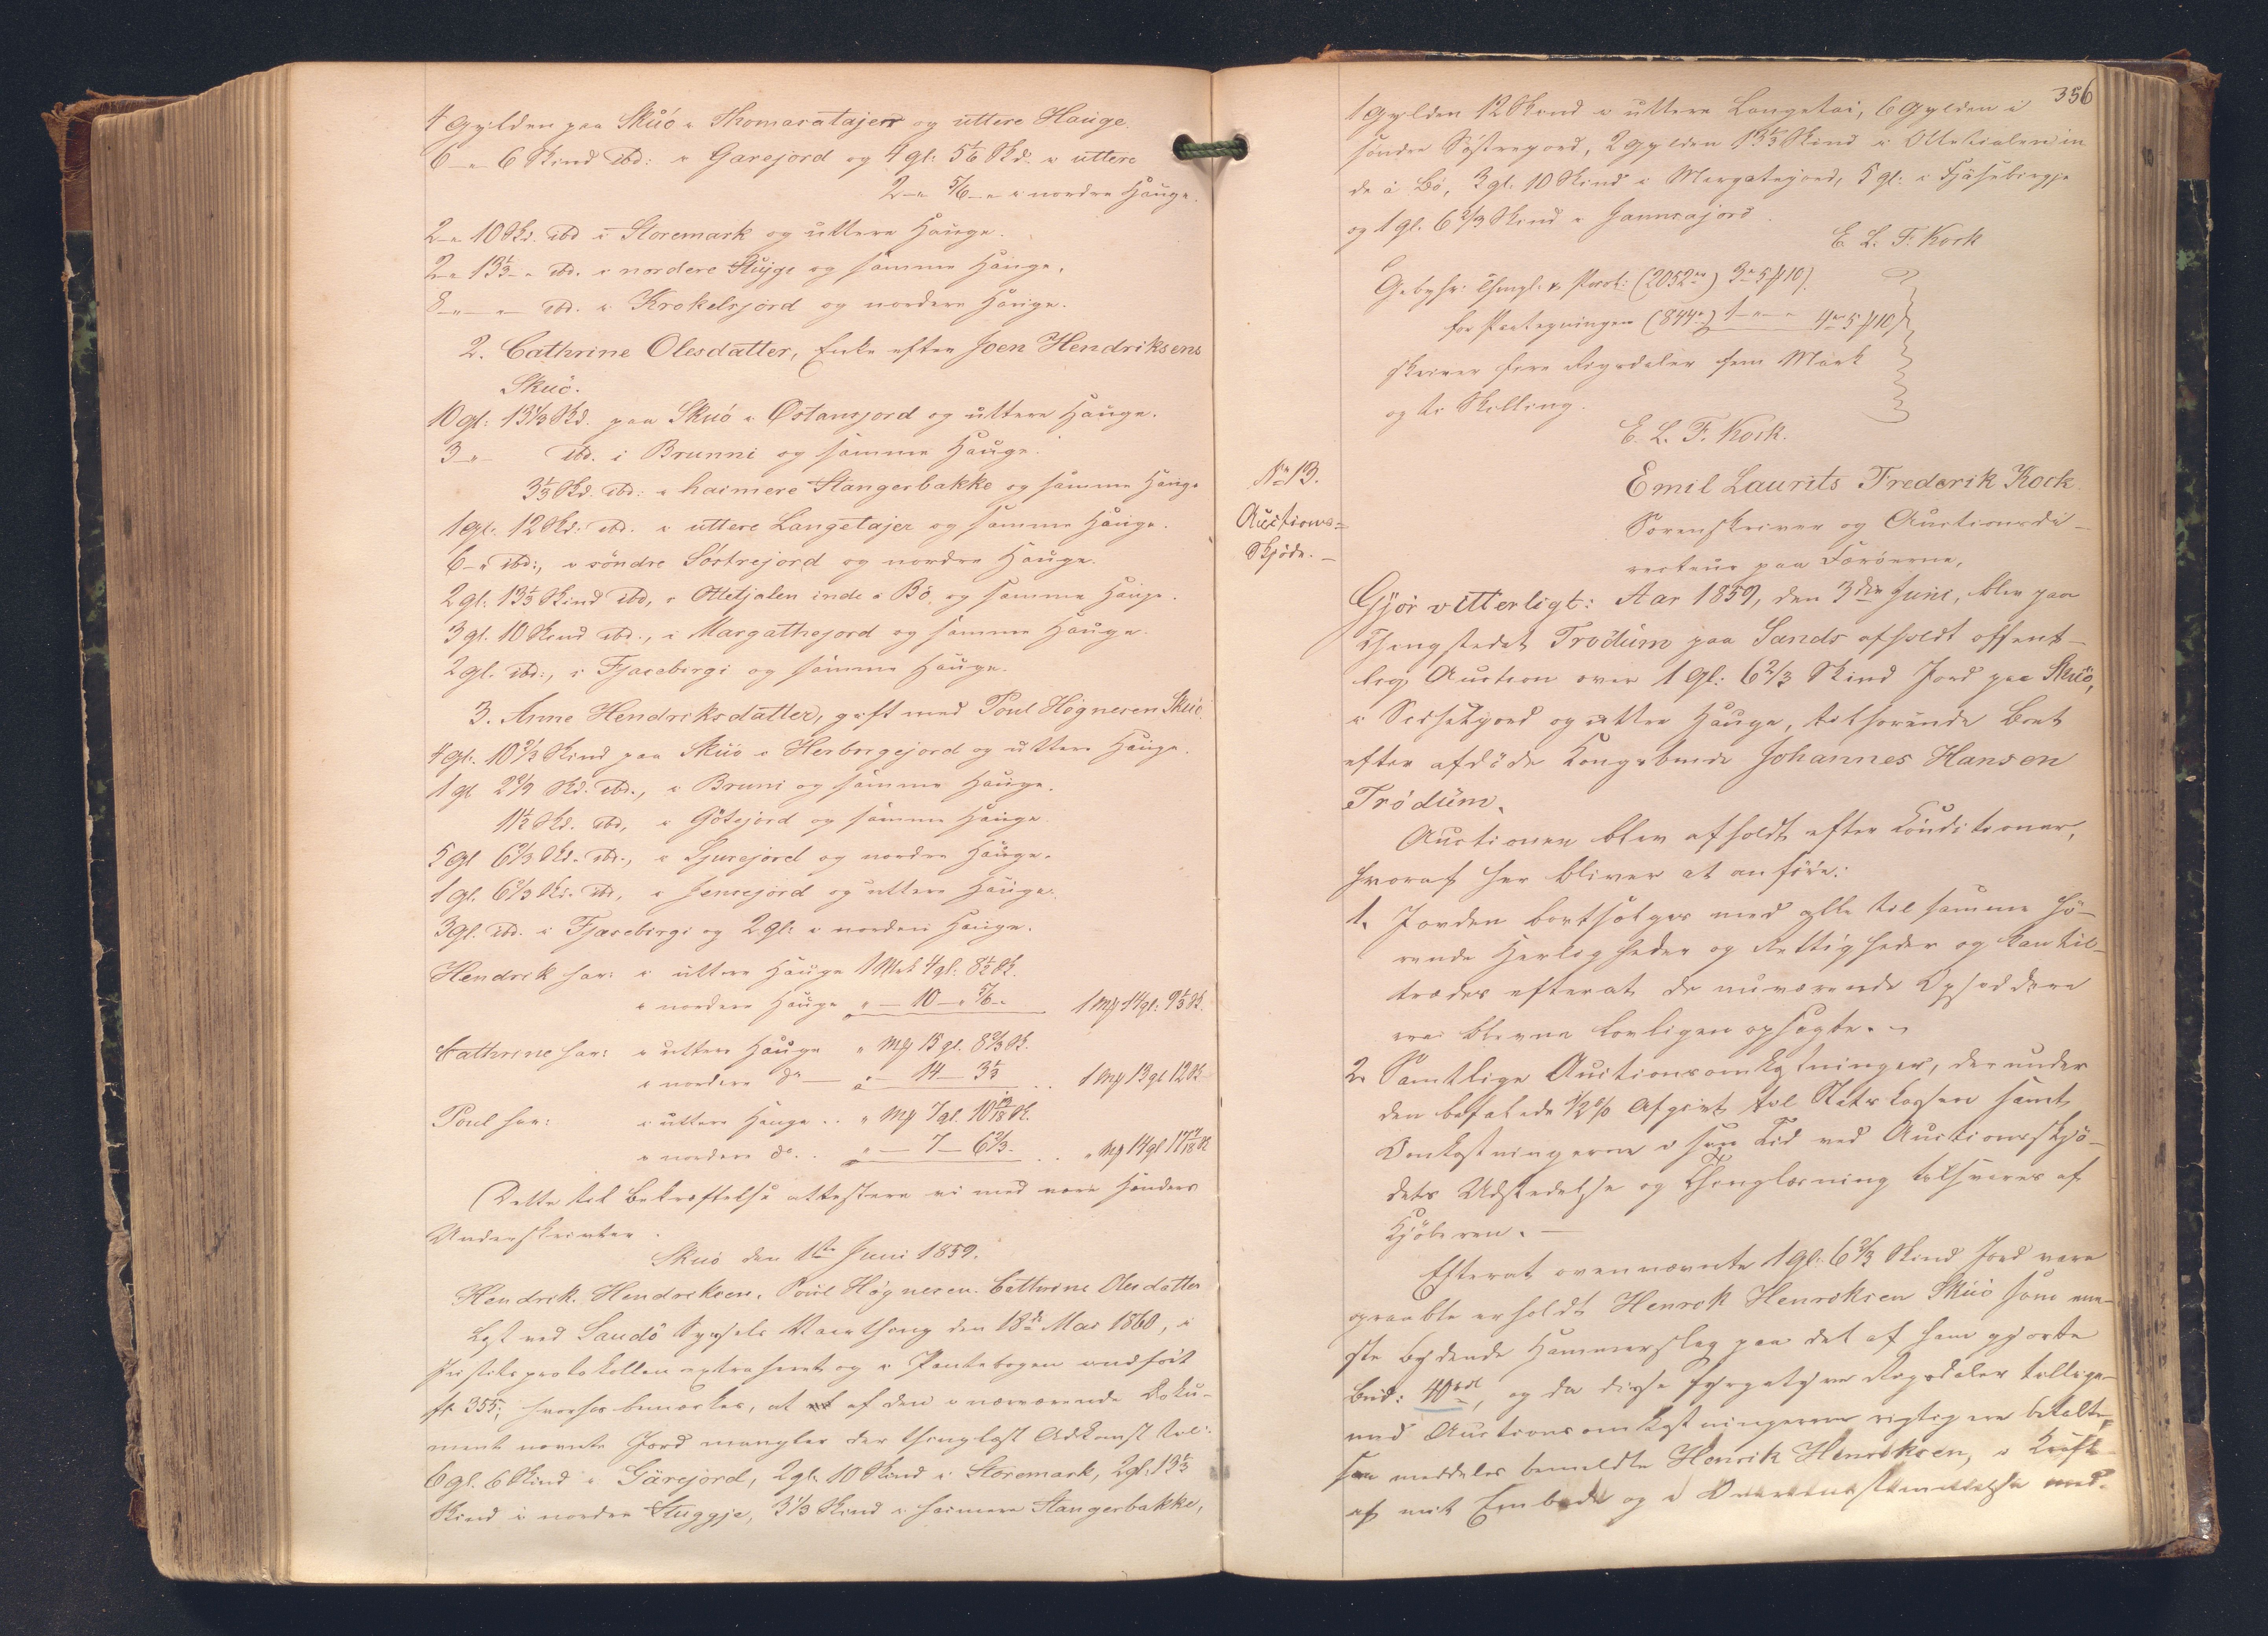 4 Gylden paa Skuö i Thomasatajer og uttere Hauge.
6 - " 6 Skind ibd: i Garejord og 4 gl: 5 1/6 Skd. i uttere
2 - " 5/6 - " i nordre Hauge.
2 - " 10 Skd. ibd i Storemark og uttere Hauge.
2 - " 13 1/3 - " ibd. i nordere Stuyge og samme Hauge.
8 - " - " ibd. i Krokelsjord og nordere Hauge.
2. Cathrine Olesdatter, Enke efter Joen Hendriksens
Skuö.
10 gl: 13 1/3 Skd. paa Skuö i Østansjord og uttere Hauge.
3 - " - ibd. i Brunni og samme Hauge.
3 1/3 Skd. ibd: i haimere Stangerbakke og samme Hauge
1 gl: 12 Skd: ibd. i uttere Langetajer og samme Hauge.
6 - " ibd:, i söndre Söstrejord og nordre Hauge.
2 gl: 13 1/3 Skind ibd, i Ottetjalen inde i Bö og samme Hauge.
3 gl. 10 Skind ibd., i Margathejord og samme Hauge.
2 gl. ibd:, i Fjasebirgi og samme Hauge.
3. Anne Hendriksdatter, gift med Poul Högnesen Skuö.
4 gl: 10 2/3 Skind paa Skuö i Herborgejord og uttere Hauge.
1 gl 2 2/9 Skd. ibd., i Bruni og samme Hauge.
11 1/2 Skd. ibd, i Götejord og samme Hauge.
5 gl 6 2/3 Skd. ibd., i Ljurejord og nordre Hauge.
1 gl. 6 2/3 Skd. ibd, i Jensejord og uttere Hauge.
3 gl. ibd. i Fjasebirgi og 2 gl: i nordere Hauge.
Hendrik har: i uttere Hauge 1 Mrk 4 gl: 8 1/2 Sk.
i nordere Hauge " - 10 - " 5/6 - " 1 Mk 14 gl: 9 1/3 Sk.
Cathrine har: i uttere Hauge " Mk 15 gl. 8 2/3 Sk.
i nordere do - " - 14 - 3 1/3 .. 1 Mk 13 gl 12 Sk
Poul har: i uttere Hauge .. " Mk 7 gl. 10 13/18 Sk.
i nordere do .. " - 7 - 6 2/3 - .. " Mk 14 gl 17 7/18 Sk
Dette til Bekræftelse attestere vi med vore Hænders
Underskrivter.
Skuö den 1ste Juni 1859.
Hendrik Hendriksen. Poul Högnesen. Cathrine Olesdatter
Læst ved Sandö Syssels Vaarthing den 18de Mai 1860, i
Justitsprotokollen extraheret og i Pantebogen indfört
fl. 355; hvorhos bemærkes, at af den i nærværende Doku-
ment nævnte Jord mangler der thinglæst Adkomst til:
6 gl. 6 Skind i Garejord, 2 gl. 10 Skind i Storemark, 2 gl. 13 1/3
Skind i nordre Stuggje, 3 1/3 Skind i haimere Stangerbakke,
356
1 Gylden 12 Skind i uttere Langetai, 6 Gylden i
söndre Söstrejord, 2 Gylden 13 1/3 Skind i Ottetialen in
de i Bö, 3 gl. 10 Skind i Margatejord, 5 gl: i Fjäsebirgje
og 1 gl. 6 2/3 Skind i Jannsajord.
E. L. F. Kock
Gebyhr: Thingl: & Prot: (2052 rd) 3 rd 5 ß 10)
for Paategningen (844 rd) 1 - " - " 4 rd 5 ß 10)
skriver fire Rigsdaler fem Mark
og ti Skilling.
E. L. F. Kock.
No 13.
Auctions=
Skjöde. -
Emil Laurits Frederik Kock
Sorenskriver og Auctionsdi-
recteur paa Færöerne,
Gjör vitterligt: Aar 1859, den 3die Juni, blev paa
Thingstedet Trödum paa Sands afholdt offent-
lig Auction over 1 gl: 6 2/3 Skind Jord paa Skuö,
i Seisetjord og uttere Hauge, tilhörende Boet
efter afdöde Kongsbonde Johannes Hansen
Trödum.
Auctionen blev afholdt efter Conditioner,
hvoraf her bliver at anföre:
1. Jorden bortsælges med alle til samme hö-
rende Herligheder og Rettigheder og kan til-
trædes efterat de nuværende Opsiddere
ere blevne lovligen opsagte. -
2. Samtlige Auctionsomkostninger, derunder
den befalede 1/2 % Afgivt til Statskassen samt
Omkostningerne i sin Tid ved Auctionsskjö-
dets Udstedelse og Thinglæsning tilsvares af
Kjöberen. -
Efterat ovennævnte 1 gl. 6 2/3 Skind Jord vare
opraabte erholdt Henrik Henriksen Skuö som me-
stbydende Hammerslag paa det af ham gjorte
Bud: 40 rd, og da disse fyrgetyve Rigsdaler tillige-
med Auctionsomkostningerne rigtig ere betalte,
saa meddeles bemeldte Henrik Henriksen, i Kraft
af mit Embede og i Overeensstemmelse med